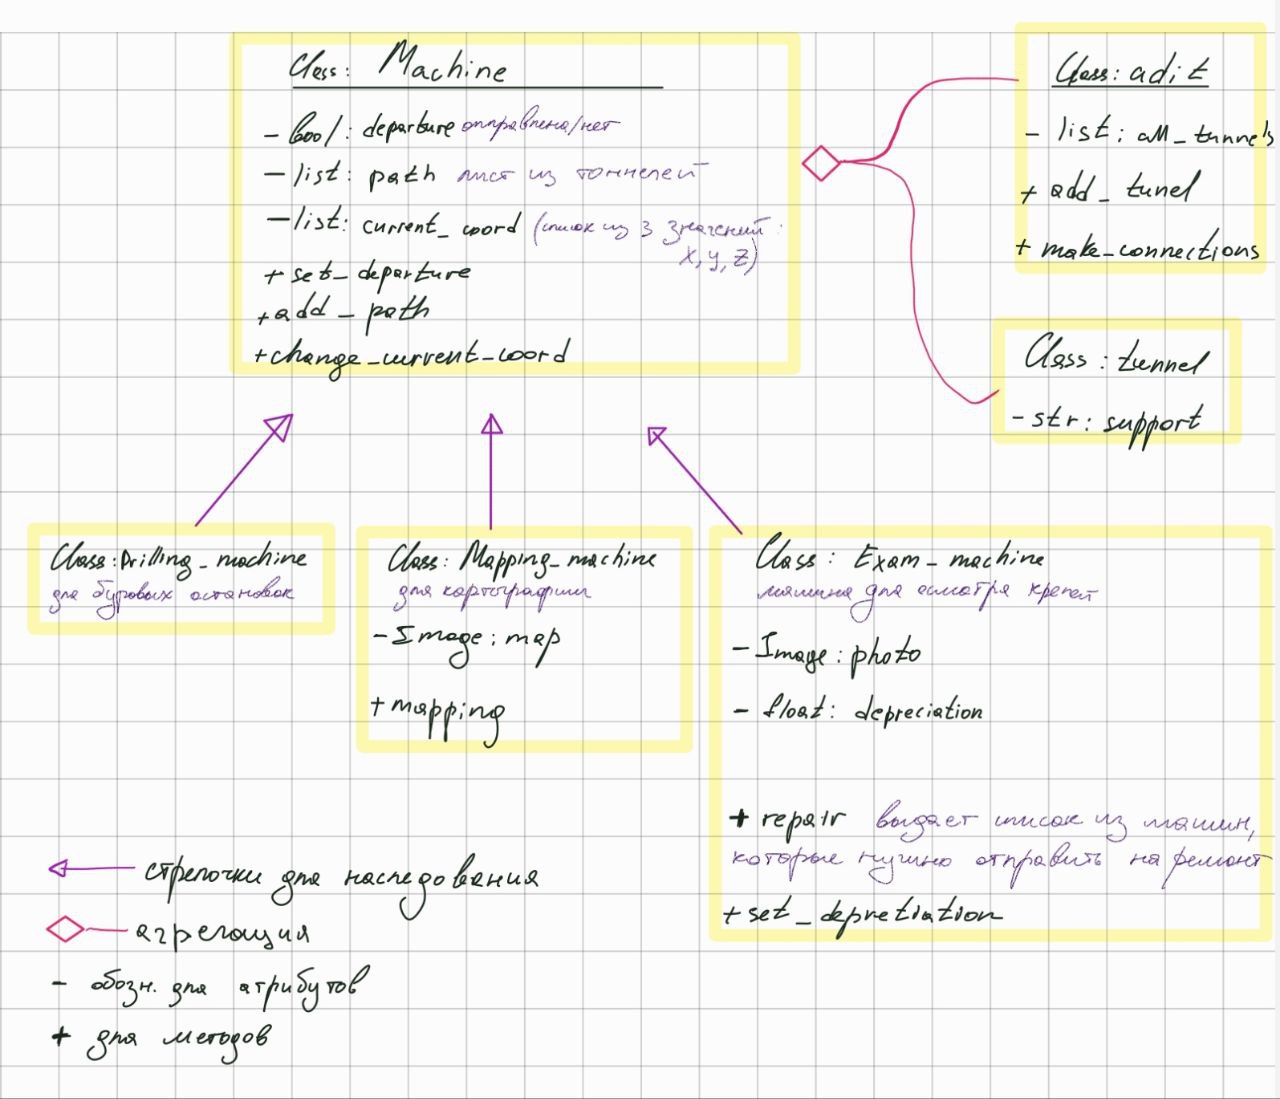 Class: Machine
- bool: departure отправлена/нет
- list: path лист из тоннелей
- list: current_coord (список из 3 значений:
x, y, z)
+ set_departure
+ add_path
+ change_current_coord
Class: adit
- list: all_tunnels
+ add_tunel
+ make_connections
Class: tunnel
- str: support
Class: Drilling_machine
для буровых остановок
Class: Mapping_machine
для картографии
- Image: map
+ mapping
Class: Exam_machine
машина для осмотра крепей
- Image: photo
- float: depreciation
+ repair выдает список из машин,
которые нужно отправить на ремонт
+ set_depretiation
стрелочки для наследования
агрегация
- обозн. для атрибутов
+ для методов